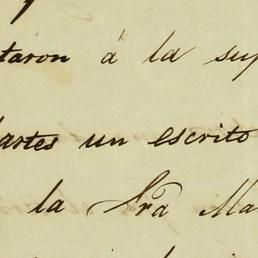 taron á la sup
artes un escrito
la Sra Ma